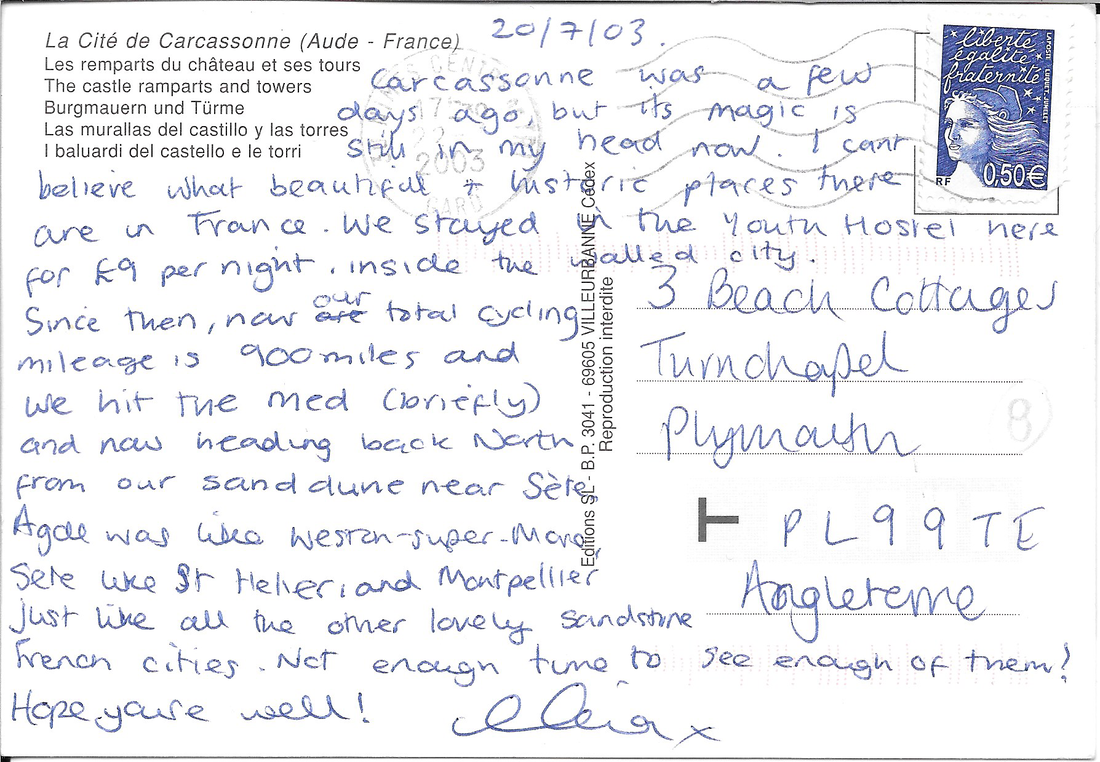 La Cité de Carcassonne (Aude - France)
Les remparts du château et ses tours
The castle ramparts and towers
Burgmauern und Türme
Las murallas del castillo y las torres
I baluardi del castello e le torri
20/7/03.
Carcassonne was a few
days ago, but its magic is
still in my head now. I cant
believe what beautiful + historic places there
are in France. We stayed in the Youth Hostel here
for £9 per night, inside the walled city.
Since then, now are our total cycling
mileage is 900 miles and
we hit the Med (briefly)
and now heading back North
from our sand dune near Sète,
Agde was like Weston-super-Mare,
Sete like St Helier, and Montpellier
just like all the other lovely sandstone
French cities. Not enough time to see enough of them!
Hope you're well!
x
Editions SL - B.P. 3041 - 69605 VILLEURBANNE Cedex
Reproduction interdite
liberté
égalité
fraternité
LA POSTE LUQUET-JUMELET
RF 0,50€
2003
GARD
3 Beach Cottages
Turnchapel
Plymouth
PL9 9TE
Angleterre
8